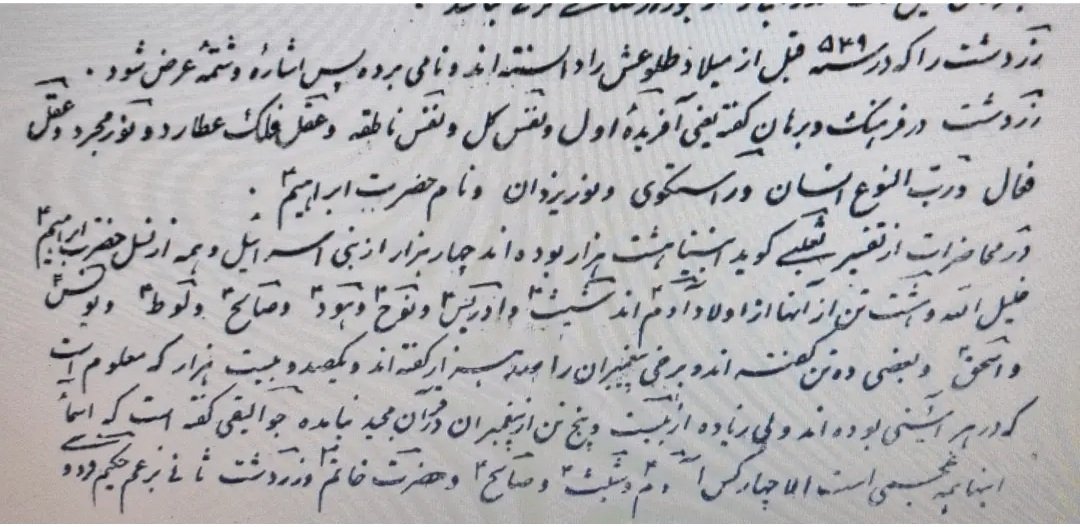 زردشت را که در سنه ۵۳۹ قبل از میلاد طلوعش را دانسته اند و نامی برده پس اشارهٔ و شتمهٔ عرض شود .
زردشت در فرهنگ و برهان گفته یعنی آفریدهٔ اول و نفس کل و نفس ناطقه و عقل فلک عطارد و نور مجرد و عقل
فعال و رب النوع انسان و راستگوی و نور یزدان و نام حضرت ابراهیم ؑ .
در محاضرات از تفسیر ثعلبی گوید انبیا هشت هزار بوده اند چهار هزار از بنی اسرائیل و همه از نسل حضرت ابراهیم ؑ
خلیل الله و هشت تن از آنها از اولاد آدم ؑ اند شیث ؑ و ادریس ؑ و نوح ؑ و هود ؑ و صالح ؑ و لوط ؑ و یونس ؑ
و اسحق ؑ و بعضی ده تن گفته اند و برخی پیغمبران را سه هزار گفته اند و یکصد و بیست هزار که معلوم است
که در هر آئینی بوده اند ولی زیاده از بیست و پنج تن از پیغمبران در قرآن مجید نیامده جوالیقی گفته است که اسماء
انبیا همه عجمی است الا چهار کس آدم ؑ و شیث ؑ و صالح ؑ و حضرت خاتم ؐ و زردشت ثانی بزعم حکیم